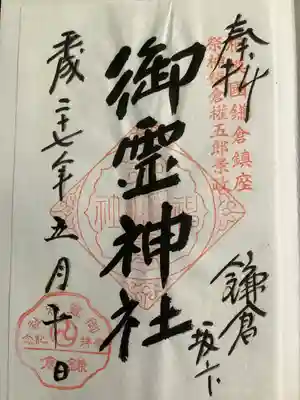 奉拝
相模国鎌倉鎮座
祭神鎌倉権五郎景政
鎌倉
坂ノ下
御霊神社
平成二十七年五月十日
鎌倉